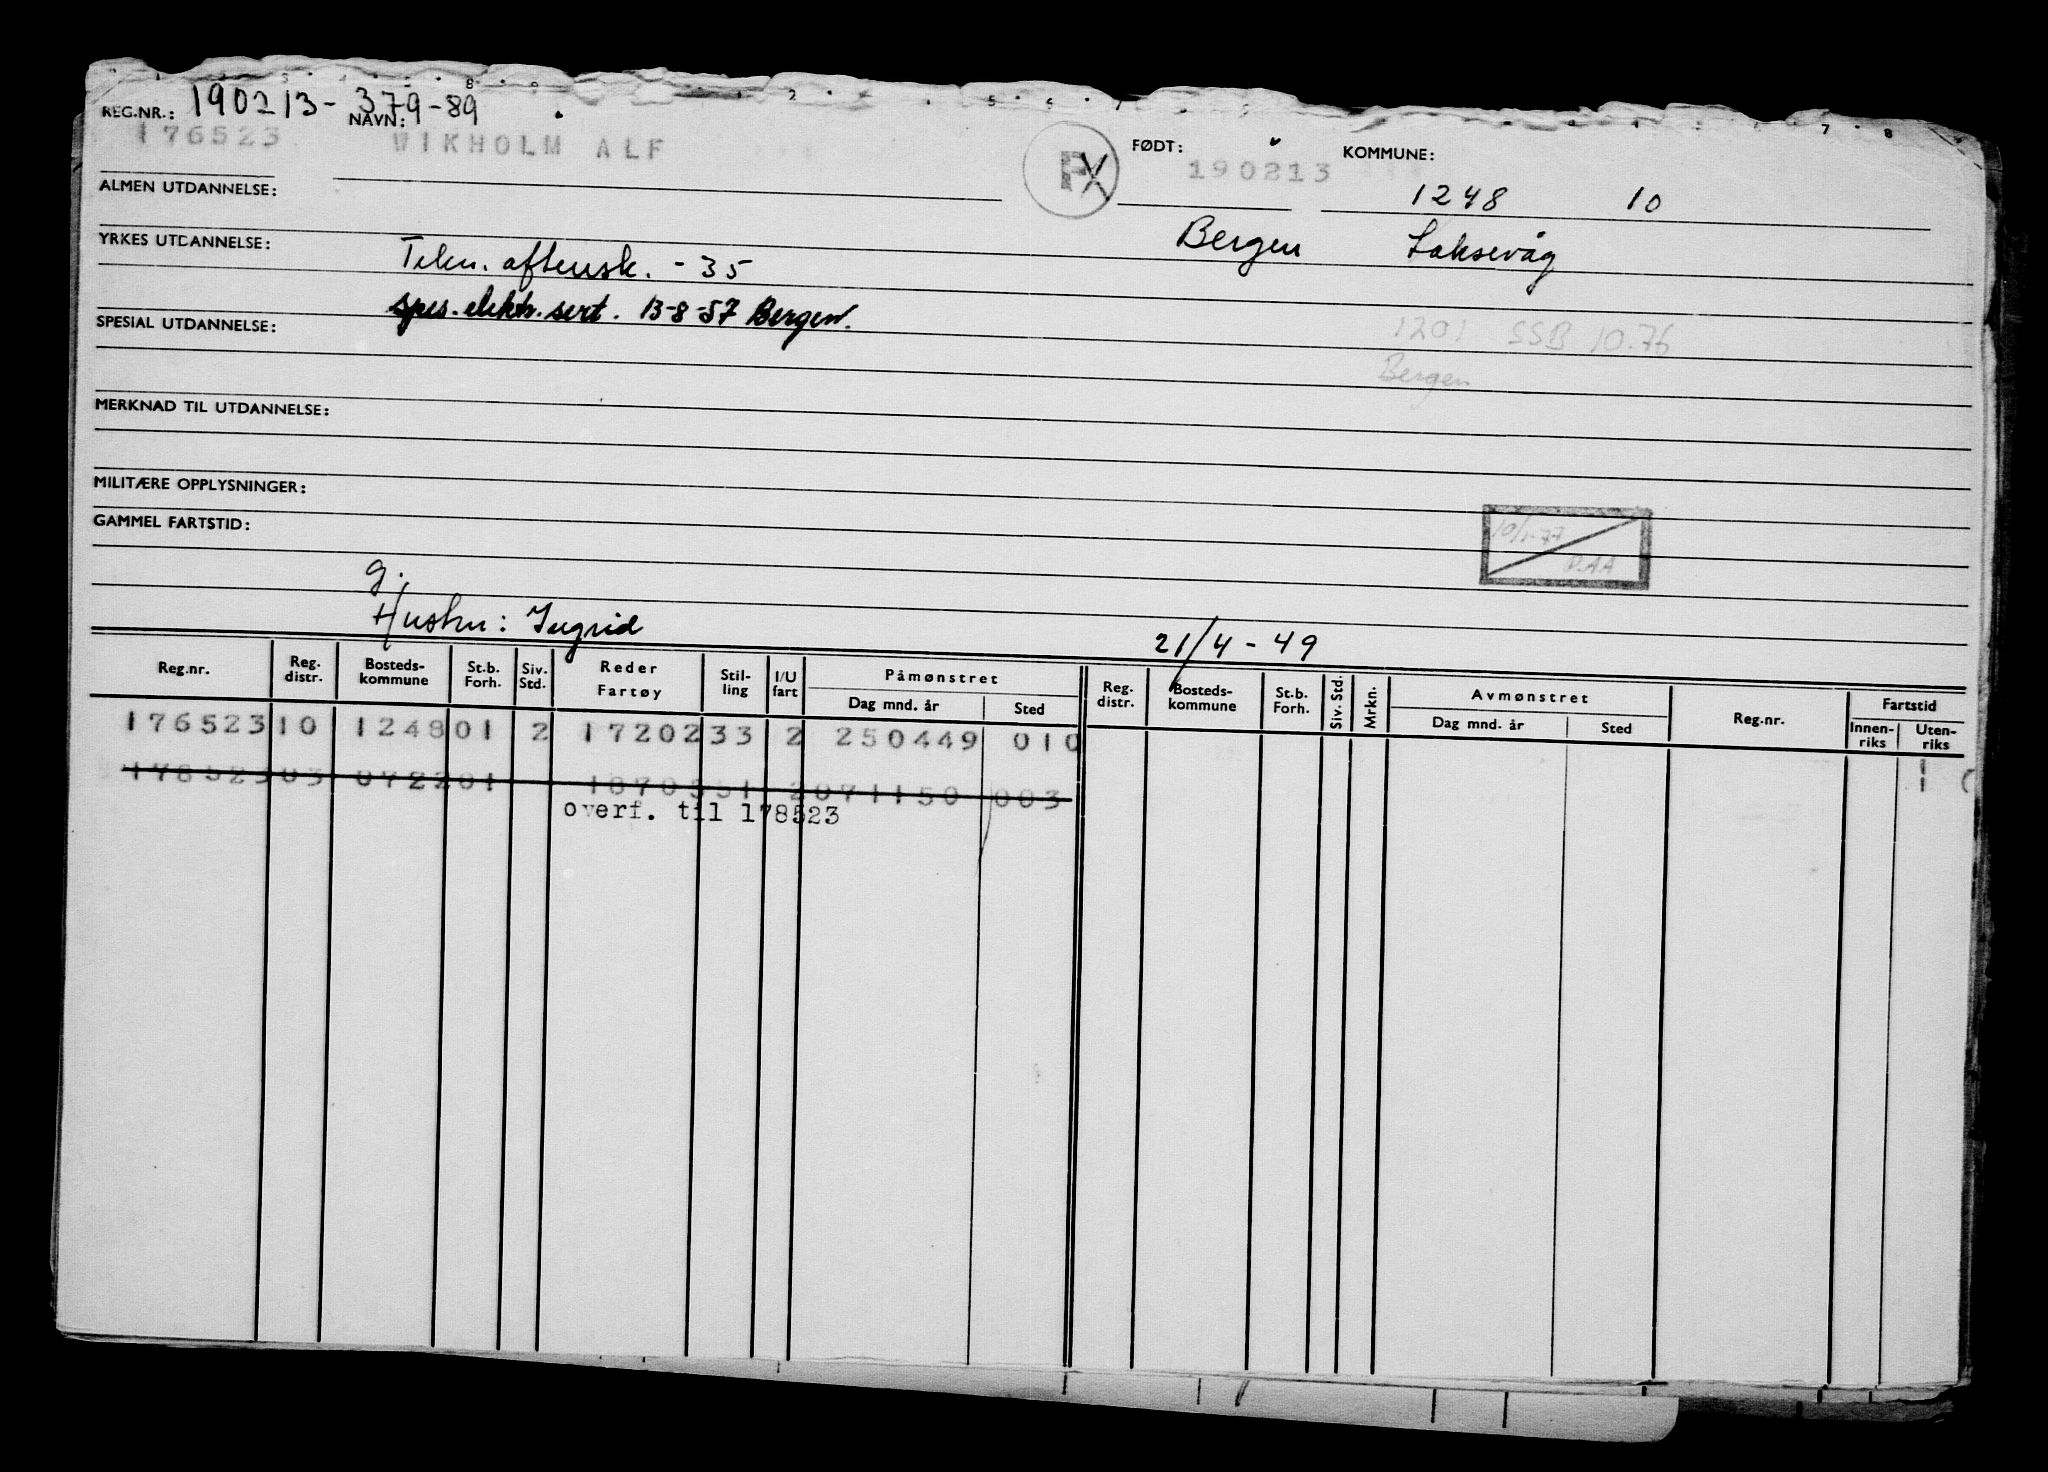 REG.NR.: 190213-379-89
176523 NAVN: WIKHOLM ALF FØDT: 190213 KOMMUNE:
ALMEN UTDANNELSE: 1248 10
YRKES UTDANNELSE: Tekn. aftensk. - 35 Bergen Laksevåg
spes. elektr. sert. 13-8-57 Bergen.
SPESIAL UTDANNELSE: 1201 SSB 10.76
Bergen
MERKNAD TIL UTDANNELSE:
MILITÆRE OPPLYSNINGER:
GAMMEL FARTSTID: 10/1-77
g.
Hustru: Ingrid 21/4-49
Reg.nr. Reg. distr. Bosteds-kommune St.b. Forh. Siv. Std. Reder Fartøy Stil-ling I/U fart Påmønstret Dag mnd. år Sted Reg. distr. Bosteds-kommune St.b. Forh. Siv. Std. Mrkn. Avmønstret Dag mnd. år Sted Reg.nr. Fartstid Innen-riks Uten-riks
176523 10 1248 01 2 17202 33 2 250449 010
178523 03 0722 01 071150 003
overf. til 178523